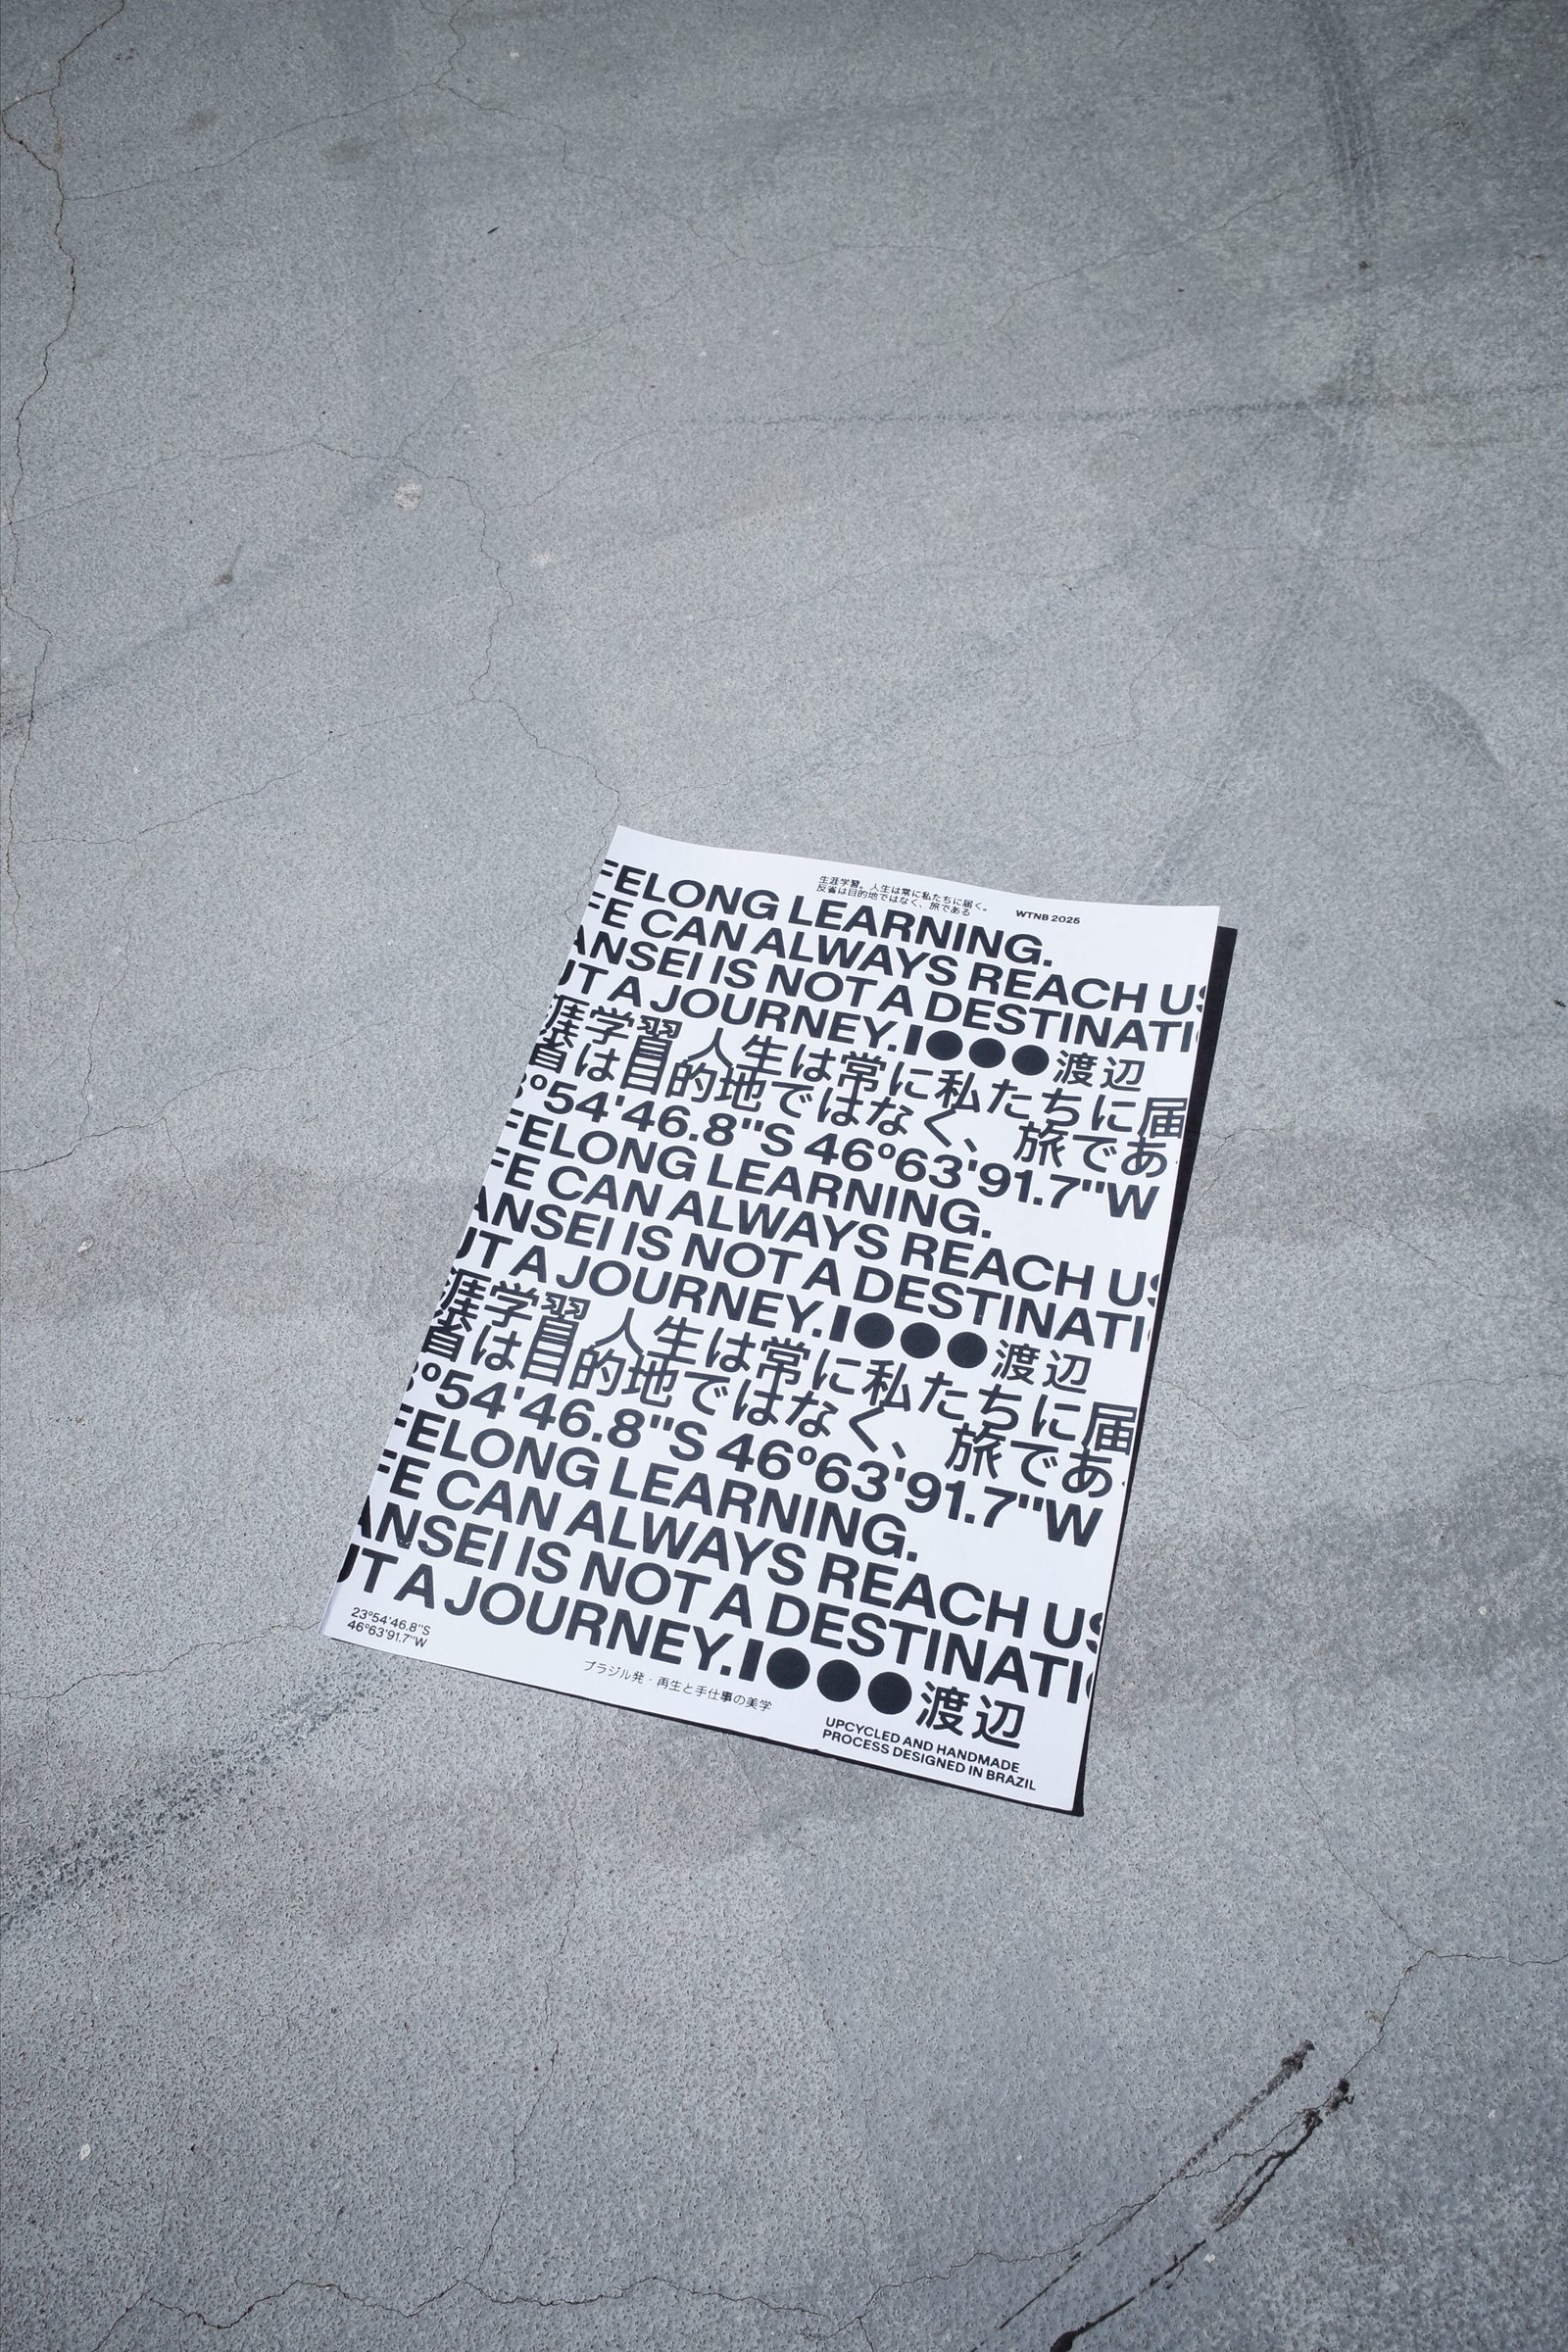 生涯学習。人生は常に私たちに届く。
反省は目的地ではなく、旅である
WTNB 2025
FELONG LEARNING.
FE CAN ALWAYS REACH US
ANSEI IS NOT A DESTINATI
UT A JOURNEY.I●●●渡辺
涯学習 人生は常に私たちに届
省は目的地ではなく、旅であ
3º54'46.8"S 46º63'91.7"W
FELONG LEARNING.
FE CAN ALWAYS REACH US
ANSEI IS NOT A DESTINATI
UT A JOURNEY.I●●●渡辺
涯学習 人生は常に私たちに届
省は目的地ではなく、旅であ
3º54'46.8"S 46º63'91.7"W
FELONG LEARNING.
FE CAN ALWAYS REACH US
ANSEI IS NOT A DESTINATI
UT A JOURNEY.I●●●渡辺
23º54'46.8"S
46º63'91.7"W
ブラジル発・再生と手仕事の美学
UPCYCLED AND HANDMADE
PROCESS DESIGNED IN BRAZIL